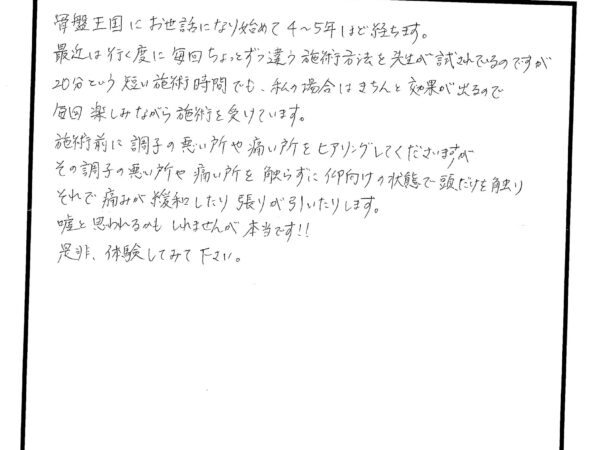 骨盤王国にお世話になり始めて4〜5年ほど経ちます。
最近は行く度に毎回ちょっとずつ違う施術方法を先生が試されているのですが
20分という短い施術時間でも、私の場合はきちんと効果が出るので
毎回楽しみながら施術を受けています。
施術前に調子の悪い所や痛い所をヒアリングしてくださいますが
その調子の悪い所や痛い所を触らずに仰向けの状態で頭だけを触り
それで痛みが緩和したり張りが引いたりします。
嘘と思われるかもしれませんが本当です!!
是非、体験してみて下さい。